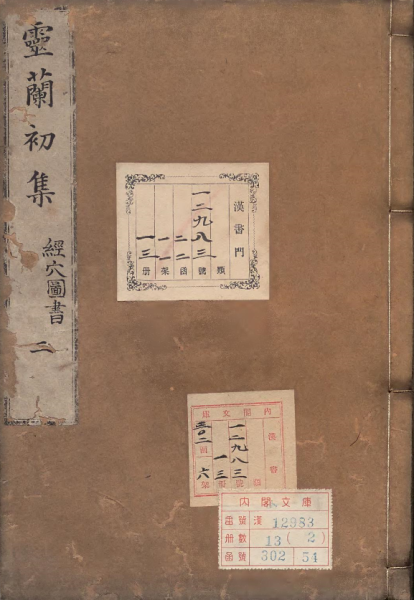 靈蘭初集
經穴圖書
二
漢書門
一二九八三
類
號
二二
函
一一
架
一三
册
内閣文庫
漢書
一二九八三
一三
三〇二
函
六
架
内閣文庫
番號 漢 12983
册數 13(2)
函號 302 54